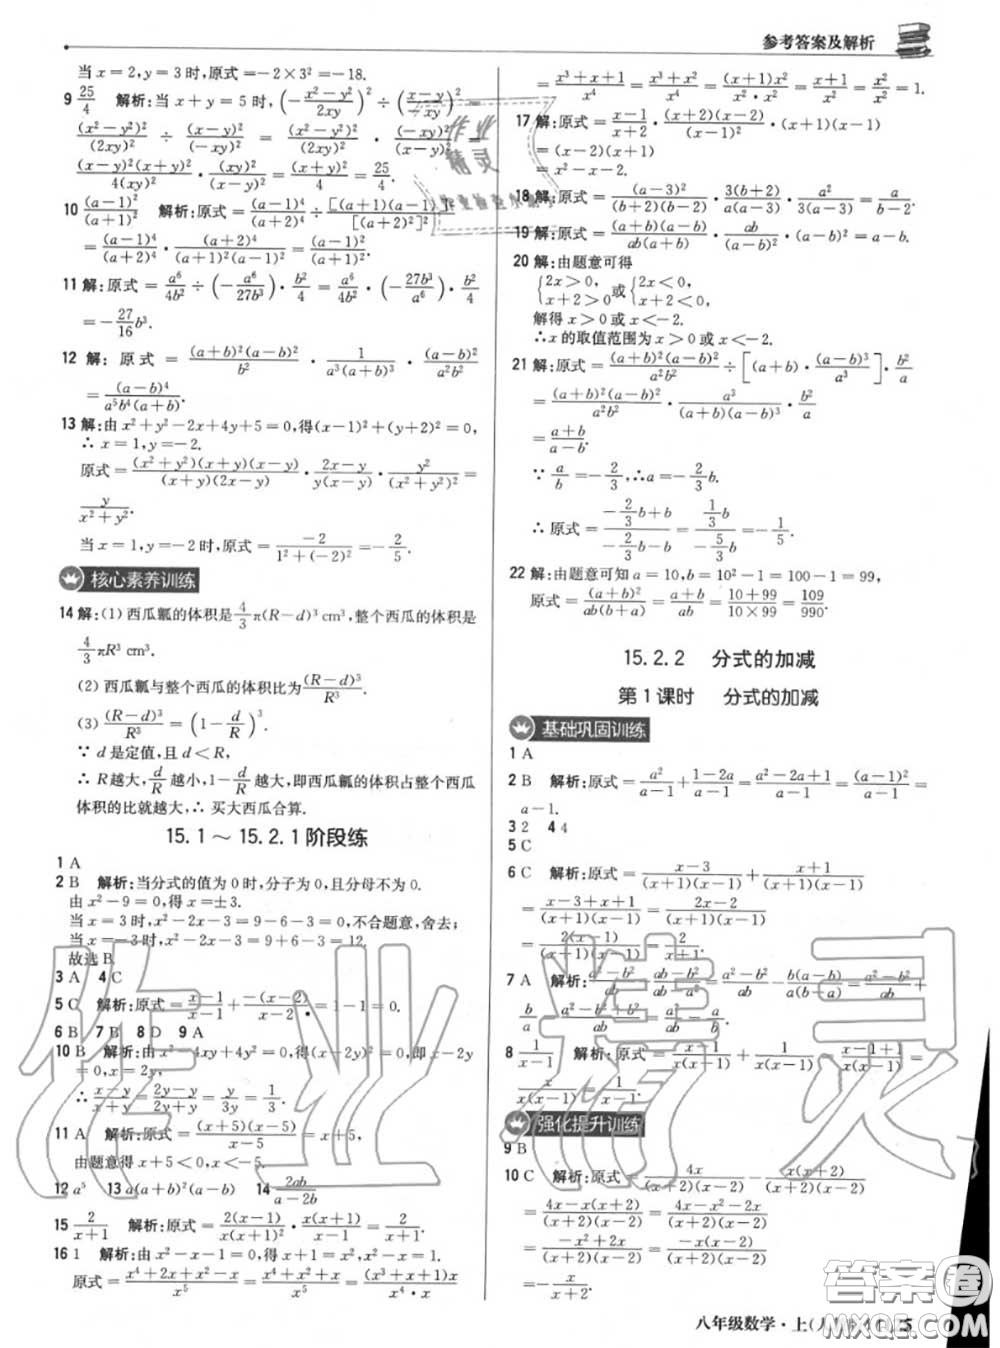 参考答案及解析
当 x=2,y=3时,原式=-2×3²=-18.
9 25/4 解析:当 x+y=5 时,(-(x²-y²)/(2xy))²÷((x-y)/(-xy))²=
(x²-y²)²/(2xy)²÷(x-y)²/(-xy)²=(x²-y²)²/(2xy)²·(-xy)²/(x-y)²=
(x-y)²(x+y)²/(4(xy)²)·(xy)²/(x-y)²=(x+y)²/4=25/4.
10 (a-1)²/(a+1)² 解析:原式=(a-1)⁴/(a+2)⁴÷[(a+1)(a-1)]²/[(a+2)²]²
=(a-1)⁴/(a+2)⁴·(a+2)⁴/((a+1)²(a-1)²)=(a-1)²/(a+1)².
11 解:原式=a⁶/4b²÷(-a⁶/27b³)·b²/4=a⁶/4b²·(-27b³/a⁶)·b²/4
=-27/16 b³.
12 解:原式=(a+b)²(a-b)²/b²·1/(a³(a+b)³)·
=(a-b)⁴/(a⁵b⁴(a+b)).
13 解:由 x²+y²-2x+4y+5=0,得(x-1)²+(y+2)²=0,
∴ x=1,y=-2.
原式=(x²+y²)(x+y)(x-y)/((x+y)(2x-y))·(2x-y)/(y(x-y))·y²/(x²+y²)²=
y/(x²+y²).
当 x=1,y=-2 时,原式=-2/(1²+(-2)²)=-2/5.
核心素养训练
14 解:(1) 西瓜瓤的体积是4/3π(R-d)³ cm³,整个西瓜的体积是
4/3πR³ cm³.
(2) 西瓜瓤与整个西瓜的体积比为(R-d)³/R³.
(3) (R-d)³/R³=(1-d/R)³.
∵ d 是定值,且 d<R,
∴ R越大,d/R越小,1-d/R越大,即西瓜瓤的体积占整个西瓜
体积的比就越大,∴ 买大西瓜合算.
15.1～15.2.1阶段练
1 A
2 B 解析:当分式的值为 0 时,分子为 0,且分母不为 0.
由 x²-9=0,得 x=±3.
当 x=3时,x²-2x-3=9-6-3=0,不合题意,舍去;
当 x=-3时,x²-2x-3=9+6-3=12,
故选 B.
3 A 4 C
5 C 解析:原式=(x-1)/(x-1)+(-(x-2))/(x-2)=1-1=0.
6 B 7 B 8 D 9 A
10 B 解析:由 x²-4xy+4y²=0,得(x-2y)²=0,即 x-2y
=0,∴ x=2y,
∴ (x-y)/(x+y)=(2y-y)/(2y+y)=y/3y=1/3.
11 A 解析:原式=(x+5)(x-5)/(x-5)=x+5,
由题意得 x+5<0,∴ x<-5.
12 a⁵ 13 a(a+b)²(a-b) 14 2ab/(a-2b)
15 2/(x+1) 解析:原式=2(x-1)/(x(x+1))²·
16 1 解析:由 x²-x-1=0,得 x²=x+1,x²-x=1.
原式=(x⁴+2x³+x²)/x⁵=x²(x²+2x+1)/x⁵=(x³+x+1)/x
=(x³+x+1)/x⁴=(x²(x+1)+x²)/x⁴=(x+1)²/(x²·x²)=(x+1)/x²=x²/x²=1.
17 解:原式=(x-1)/(x+2)·(x+2)(x-2)/(x-1)²·
=(x-2)(x+1)
=x²-x-2.
19 解:原式=(a+b)(a-b)/ab·ab(a-b)/(a(a+b))=a-b.
20 解:由题意可得
{2x>0,x+2>0 或 {2x<0,x+2<0,
解得 x>0 或 x<-2.
∴x 的取值范围为 x>0 或 x<-2.
21 解:原式=(a+b)²(a-b)²/a²b²÷[(a+b)·(a-b)³/a³]·b²/a
=(a+b)²(a-b)²/a²b²·a³/((a+b)(a-b)³)·b²/a
=(a+b)/(a-b).
∵ a/b=-2/3,∴a=-2/3 b.
∴ 原式=(-2/3b+b)/(-2/3b-b)=(1/3b)/(-5/3b)=-1/5.
22 解:由题意可知 a=10,b=10²-1=100-1=99,
原式=(a+b)²/(ab(b+a))=(a+b)/ab=(10+99)/(10×99)=109/990.
15.2.2 分式的加减
第 1 课时 分式的加减
基础巩固训练
1 A
2 B 解析:原式=a²/(a-1)+(1-2a)/(a-1)=(a²-2a+1)/(a-1)=(a-1)²/(a-1)=
a-1.
3 2 4 4
5 C
6 C 解析:原式=(x-3)/((x+1)(x-1))+(x+1)/((x+1)(x-1))
=(x-3+x+1)/((x+1)(x-1))=(2x-2)/((x+1)(x-1))
=2(x-1)/((x+1)(x-1))=2/(x+1).
7 A 解析:
8 1/(x-1) 解析:原式=(x-1)/(x(x-1))+1/(x(x-1))=(x-1+1)/(x(x-1))
=x/(x(x-1))=1/(x-1).
强化提升训练
9 B
10 C 解析:原式=4x/((x+2)(x-2))-
=(4x-x²-2x)/((x+2)(x-2))=(2x-x²)/((x+2)(x-2))
=-x/(x+2).
八年级数学·上
作业精灵
答案圈